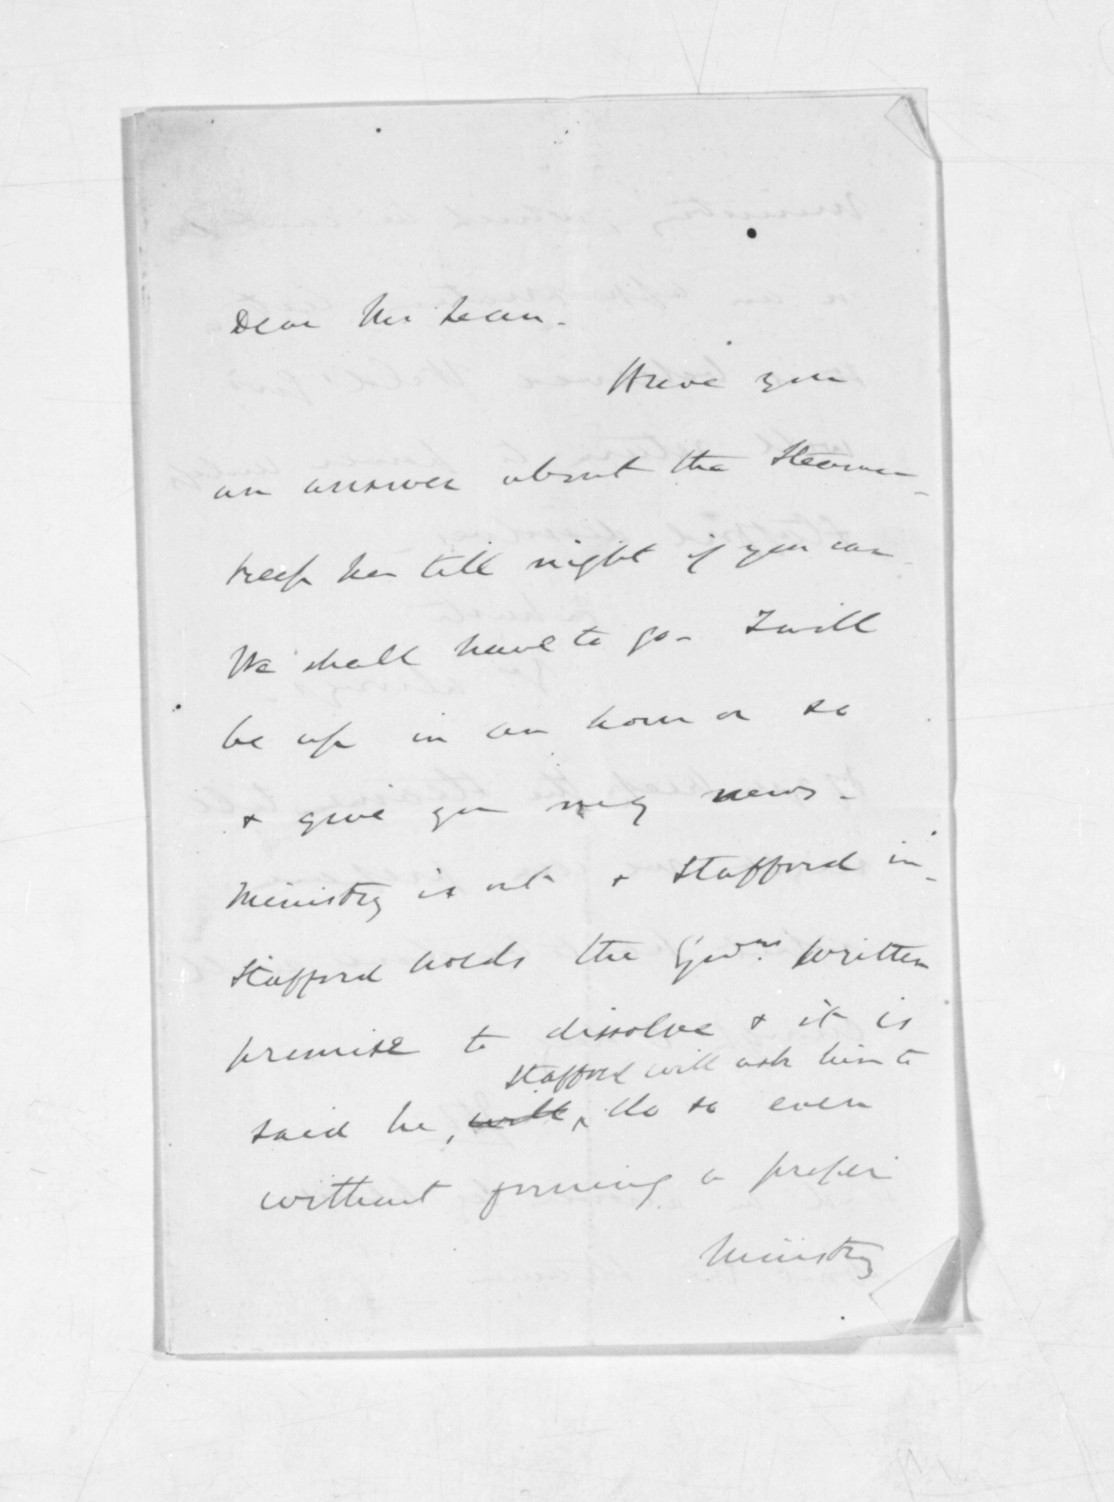 Dear McLean.
Have you
an answer about the Steamer _
keep her till night if you can.
We shall have to go - I will
be up in an hour or so
& give you my news -
Ministry is out & Stafford in _
Stafford holds the Govrs. written
promise to dissolve & it is
Stafford will ask him to
said he, will, do so even
without forming a proper
Ministry